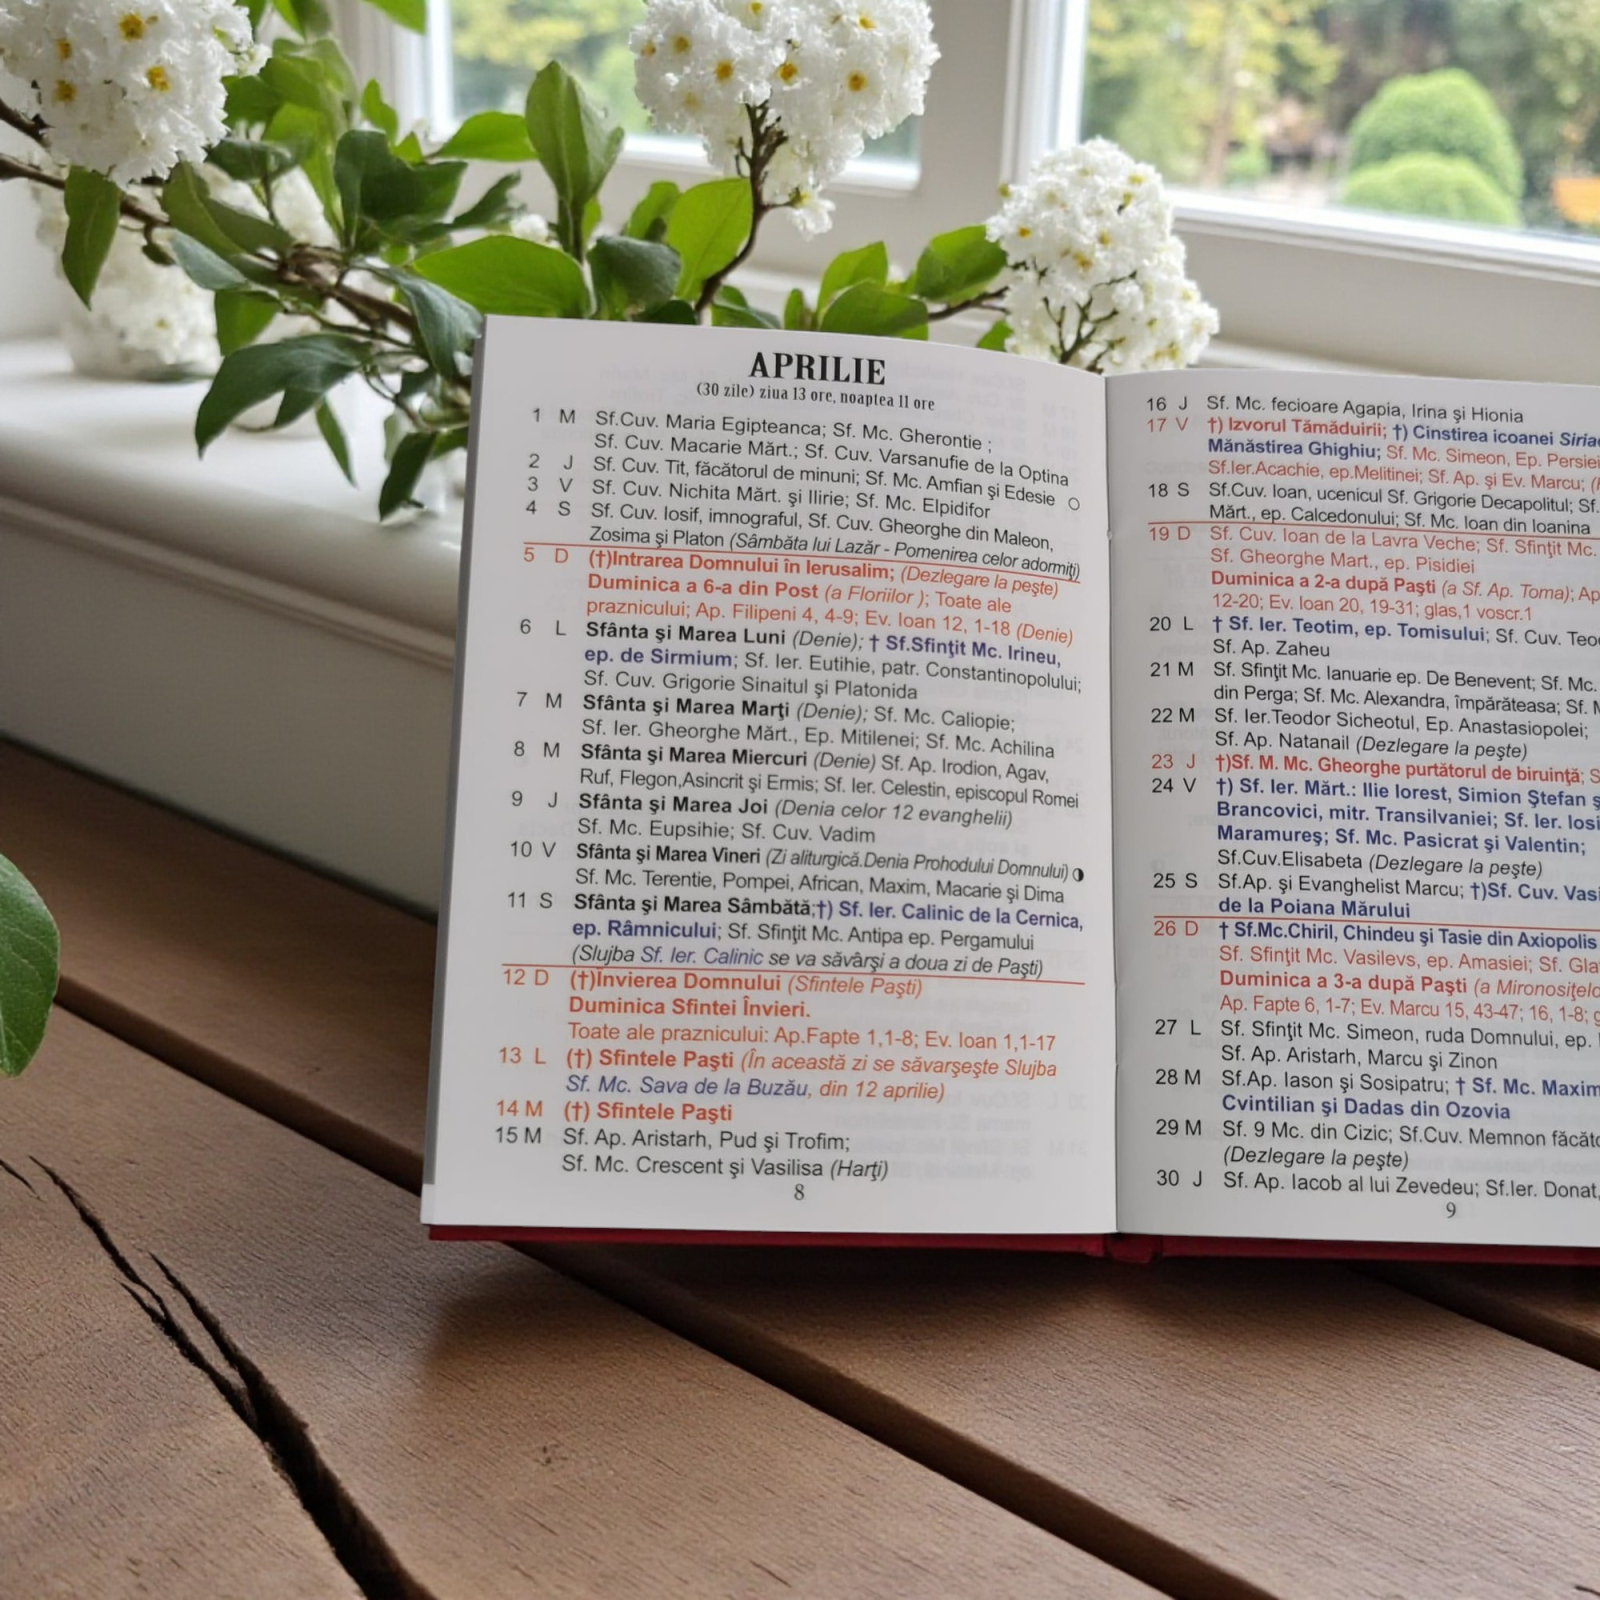 APRILIE
(30 zile) ziua 13 ore, noaptea 11 ore
1 M Sf.Cuv. Maria Egipteanca; Sf. Mc. Gherontie ;
Sf. Cuv. Macarie Mărt.; Sf. Cuv. Varsanufie de la Optina
2 J Sf. Cuv. Tit, făcătorul de minuni; Sf. Mc. Amfian şi Edesie
3 V Sf. Cuv. Nichita Mărt. şi Ilirie; Sf. Mc. Elpidifor
4 S Sf. Cuv. Iosif, imnograful, Sf. Cuv. Gheorghe din Maleon,
Zosima şi Platon (Sâmbăta lui Lazăr - Pomenirea celor adormiţi)
5 D (†)Intrarea Domnului în Ierusalim; (Dezlegare la peşte)
Duminica a 6-a din Post (a Floriilor ); Toate ale
praznicului; Ap. Filipeni 4, 4-9; Ev. Ioan 12, 1-18 (Denie)
6 L Sfânta şi Marea Luni (Denie); † Sf.Sfinţit Mc. Irineu,
ep. de Sirmium; Sf. Ier. Eutihie, patr. Constantinopolului;
Sf. Cuv. Grigorie Sinaitul şi Platonida
7 M Sfânta şi Marea Marţi (Denie); Sf. Mc. Caliopie;
Sf. Ier. Gheorghe Mărt., Ep. Mitilenei; Sf. Mc. Achilina
8 M Sfânta şi Marea Miercuri (Denie) Sf. Ap. Irodion, Agav,
Ruf, Flegon,Asincrit şi Ermis; Sf. Ier. Celestin, episcopul Romei
9 J Sfânta şi Marea Joi (Denia celor 12 evanghelii)
Sf. Mc. Eupsihie; Sf. Cuv. Vadim
10 V Sfânta şi Marea Vineri (Zi aliturgică.Denia Prohodului Domnului)
Sf. Mc. Terentie, Pompei, African, Maxim, Macarie şi Dima
11 S Sfânta şi Marea Sâmbătă;†) Sf. Ier. Calinic de la Cernica,
ep. Râmnicului; Sf. Sfinţit Mc. Antipa ep. Pergamului
(Slujba Sf. Ier. Calinic se va săvârşi a doua zi de Paşti)
12 D (†)Învierea Domnului (Sfintele Paşti)
Duminica Sfintei Învieri.
Toate ale praznicului: Ap.Fapte 1,1-8; Ev. Ioan 1,1-17
13 L (†) Sfintele Paşti (În această zi se săvarşeşte Slujba
Sf. Mc. Sava de la Buzău, din 12 aprilie)
14 M (†) Sfintele Paşti
15 M Sf. Ap. Aristarh, Pud şi Trofim;
Sf. Mc. Crescent şi Vasilisa (Harţi)
8
16 J Sf. Mc. fecioare Agapia, Irina şi Hionia
17 V †) Izvorul Tămăduirii; †) Cinstirea icoanei
Mănăstirea Ghighiu; Sf. Mc. Simeon, Ep. Persiei
Sf.Ier.Acachie, ep.Melitinei; Sf. Ap. şi Ev. Marcu;
18 S Sf.Cuv. Ioan, ucenicul Sf. Grigorie Decapolitul; Sf.
Mărt., ep. Calcedonului; Sf. Mc. Ioan din Ioanina
19 D Sf. Cuv. Ioan de la Lavra Veche; Sf. Sfinţit Mc.
Sf. Gheorghe Mart., ep. Pisidiei
Duminica a 2-a după Paşti (a Sf. Ap. Toma); Ap
12-20; Ev. Ioan 20, 19-31; glas,1 voscr.1
20 L † Sf. Ier. Teotim, ep. Tomisului; Sf. Cuv.
Sf. Ap. Zaheu
21 M Sf. Sfinţit Mc. Ianuarie ep. De Benevent; Sf. Mc.
din Perga; Sf. Mc. Alexandra, împărăteasa; Sf.
22 M Sf. Ier.Teodor Sicheotul, Ep. Anastasiopolei;
Sf. Ap. Natanail (Dezlegare la peşte)
23 J †)Sf. M. Mc. Gheorghe purtătorul de biruinţă;
24 V †) Sf. Ier. Mărt.: Ilie Iorest, Simion Ştefan
Brancovici, mitr. Transilvaniei; Sf. Ier.
Maramureş; Sf. Mc. Pasicrat şi Valentin;
Sf.Cuv.Elisabeta (Dezlegare la peşte)
25 S Sf.Ap. şi Evanghelist Marcu; †)Sf. Cuv.
de la Poiana Mărului
26 D † Sf.Mc.Chiril, Chindeu şi Tasie din Axiopolis
Sf. Sfinţit Mc. Vasilevs, ep. Amasiei; Sf.
Duminica a 3-a după Paşti (a
Ap. Fapte 6, 1-7; Ev. Marcu 15, 43-47; 16, 1-8;
27 L Sf. Sfinţit Mc. Simeon, ruda Domnului, ep.
Sf. Ap. Aristarh, Marcu şi Zinon
28 M Sf.Ap. Iason şi Sosipatru; † Sf. Mc. Maxim
Cvintilian şi Dadas din Ozovia
29 M Sf. 9 Mc. din Cizic; Sf.Cuv. Memnon
(Dezlegare la peşte)
30 J Sf. Ap. Iacob al lui Zevedeu; Sf.Ier. Donat,
9